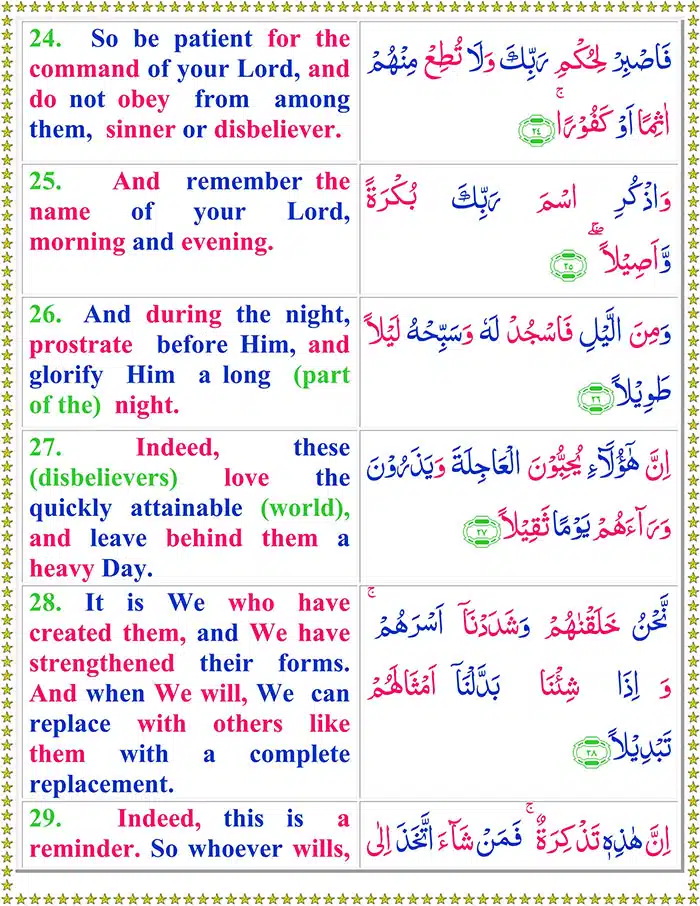 24. So be patient for the
command of your Lord, and
do not obey from among
them, sinner or disbeliever.
فَاصْبِرْ لِحُكْمِ رَبِّكَ وَلَا تُطِعْ مِنْهُمْ
اٰثِمًا اَوْ كَفُوْرًا ۚ ﴿۲۴﴾
25. And remember the
name of your Lord,
morning and evening.
وَاذْكُرِ اسْمَ رَبِّكَ بُكْرَةً
وَّاَصِيْلًا ۖ ﴿۲۵﴾
26. And during the night,
prostrate before Him, and
glorify Him a long (part
of the) night.
وَمِنَ الَّيْلِ فَاسْجُدْ لَهٗ وَسَبِّحْهُ لَيْلًا
طَوِيْلًا ﴿۲۶﴾
27. Indeed, these
(disbelievers) love the
quickly attainable (world),
and leave behind them a
heavy Day.
اِنَّ هٰٓؤُلَآءِ يُحِبُّوْنَ الْعَاجِلَةَ وَيَذَرُوْنَ
وَرَآءَهُمْ يَوْمًا ثَقِيْلًا ﴿۲۷﴾
28. It is We who have
created them, and We have
strengthened their forms.
And when We will, We can
replace with others like
them with a complete
replacement.
نَحْنُ خَلَقْنٰهُمْ وَشَدَدْنَاۤ اَسْرَهُمْ ۚ
وَ اِذَا شِئْنَا بَدَّلْنَاۤ اَمْثَالَهُمْ
تَبْدِيْلًا ﴿۲۸﴾
29. Indeed, this is a
reminder. So whoever wills,
اِنَّ هٰذِهٖ تَذْكِرَةٌ ۚ فَمَنْ شَآءَ اتَّخَذَ اِلٰى